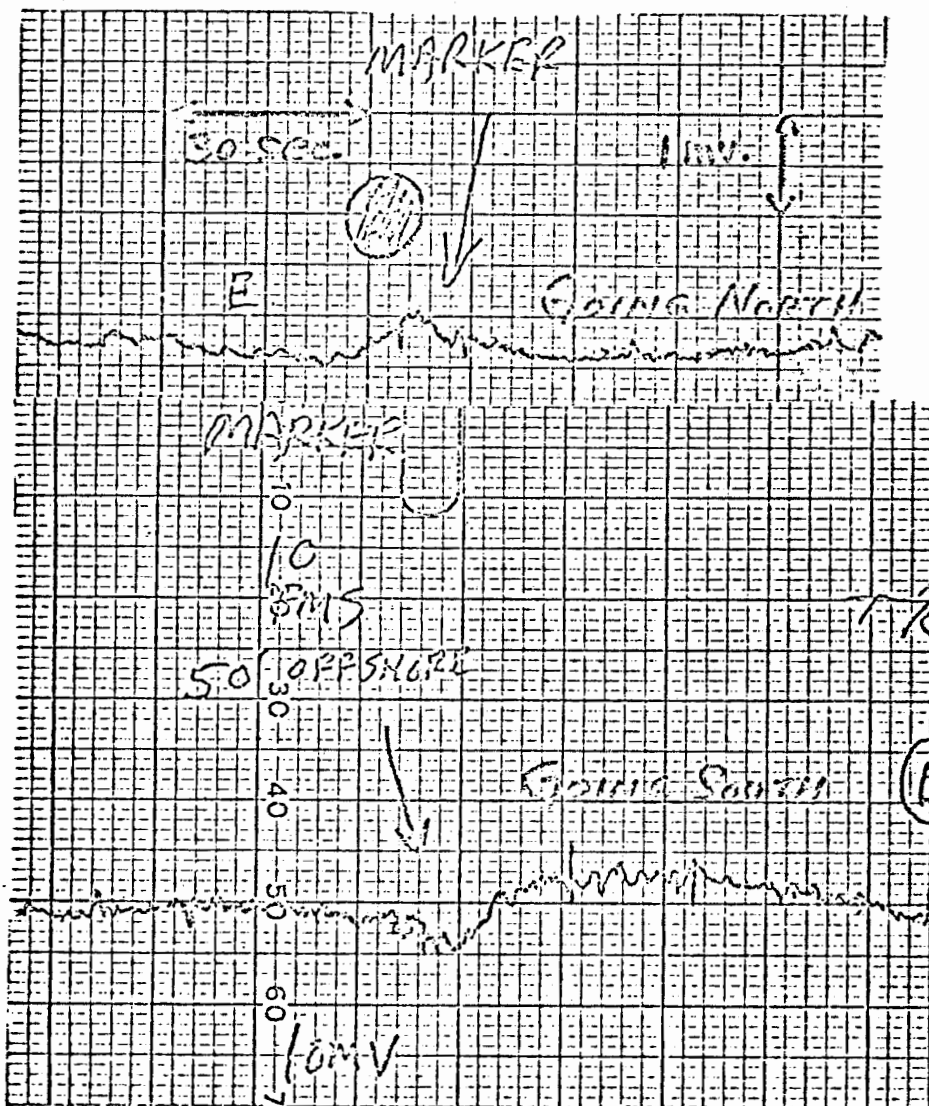 MARKER
30 sec.
1 mv.
E
GOING NORTH
MARKER
10
10
50' OFFSHORE
30
GOING SOUTH
40
50
60
10MV
7